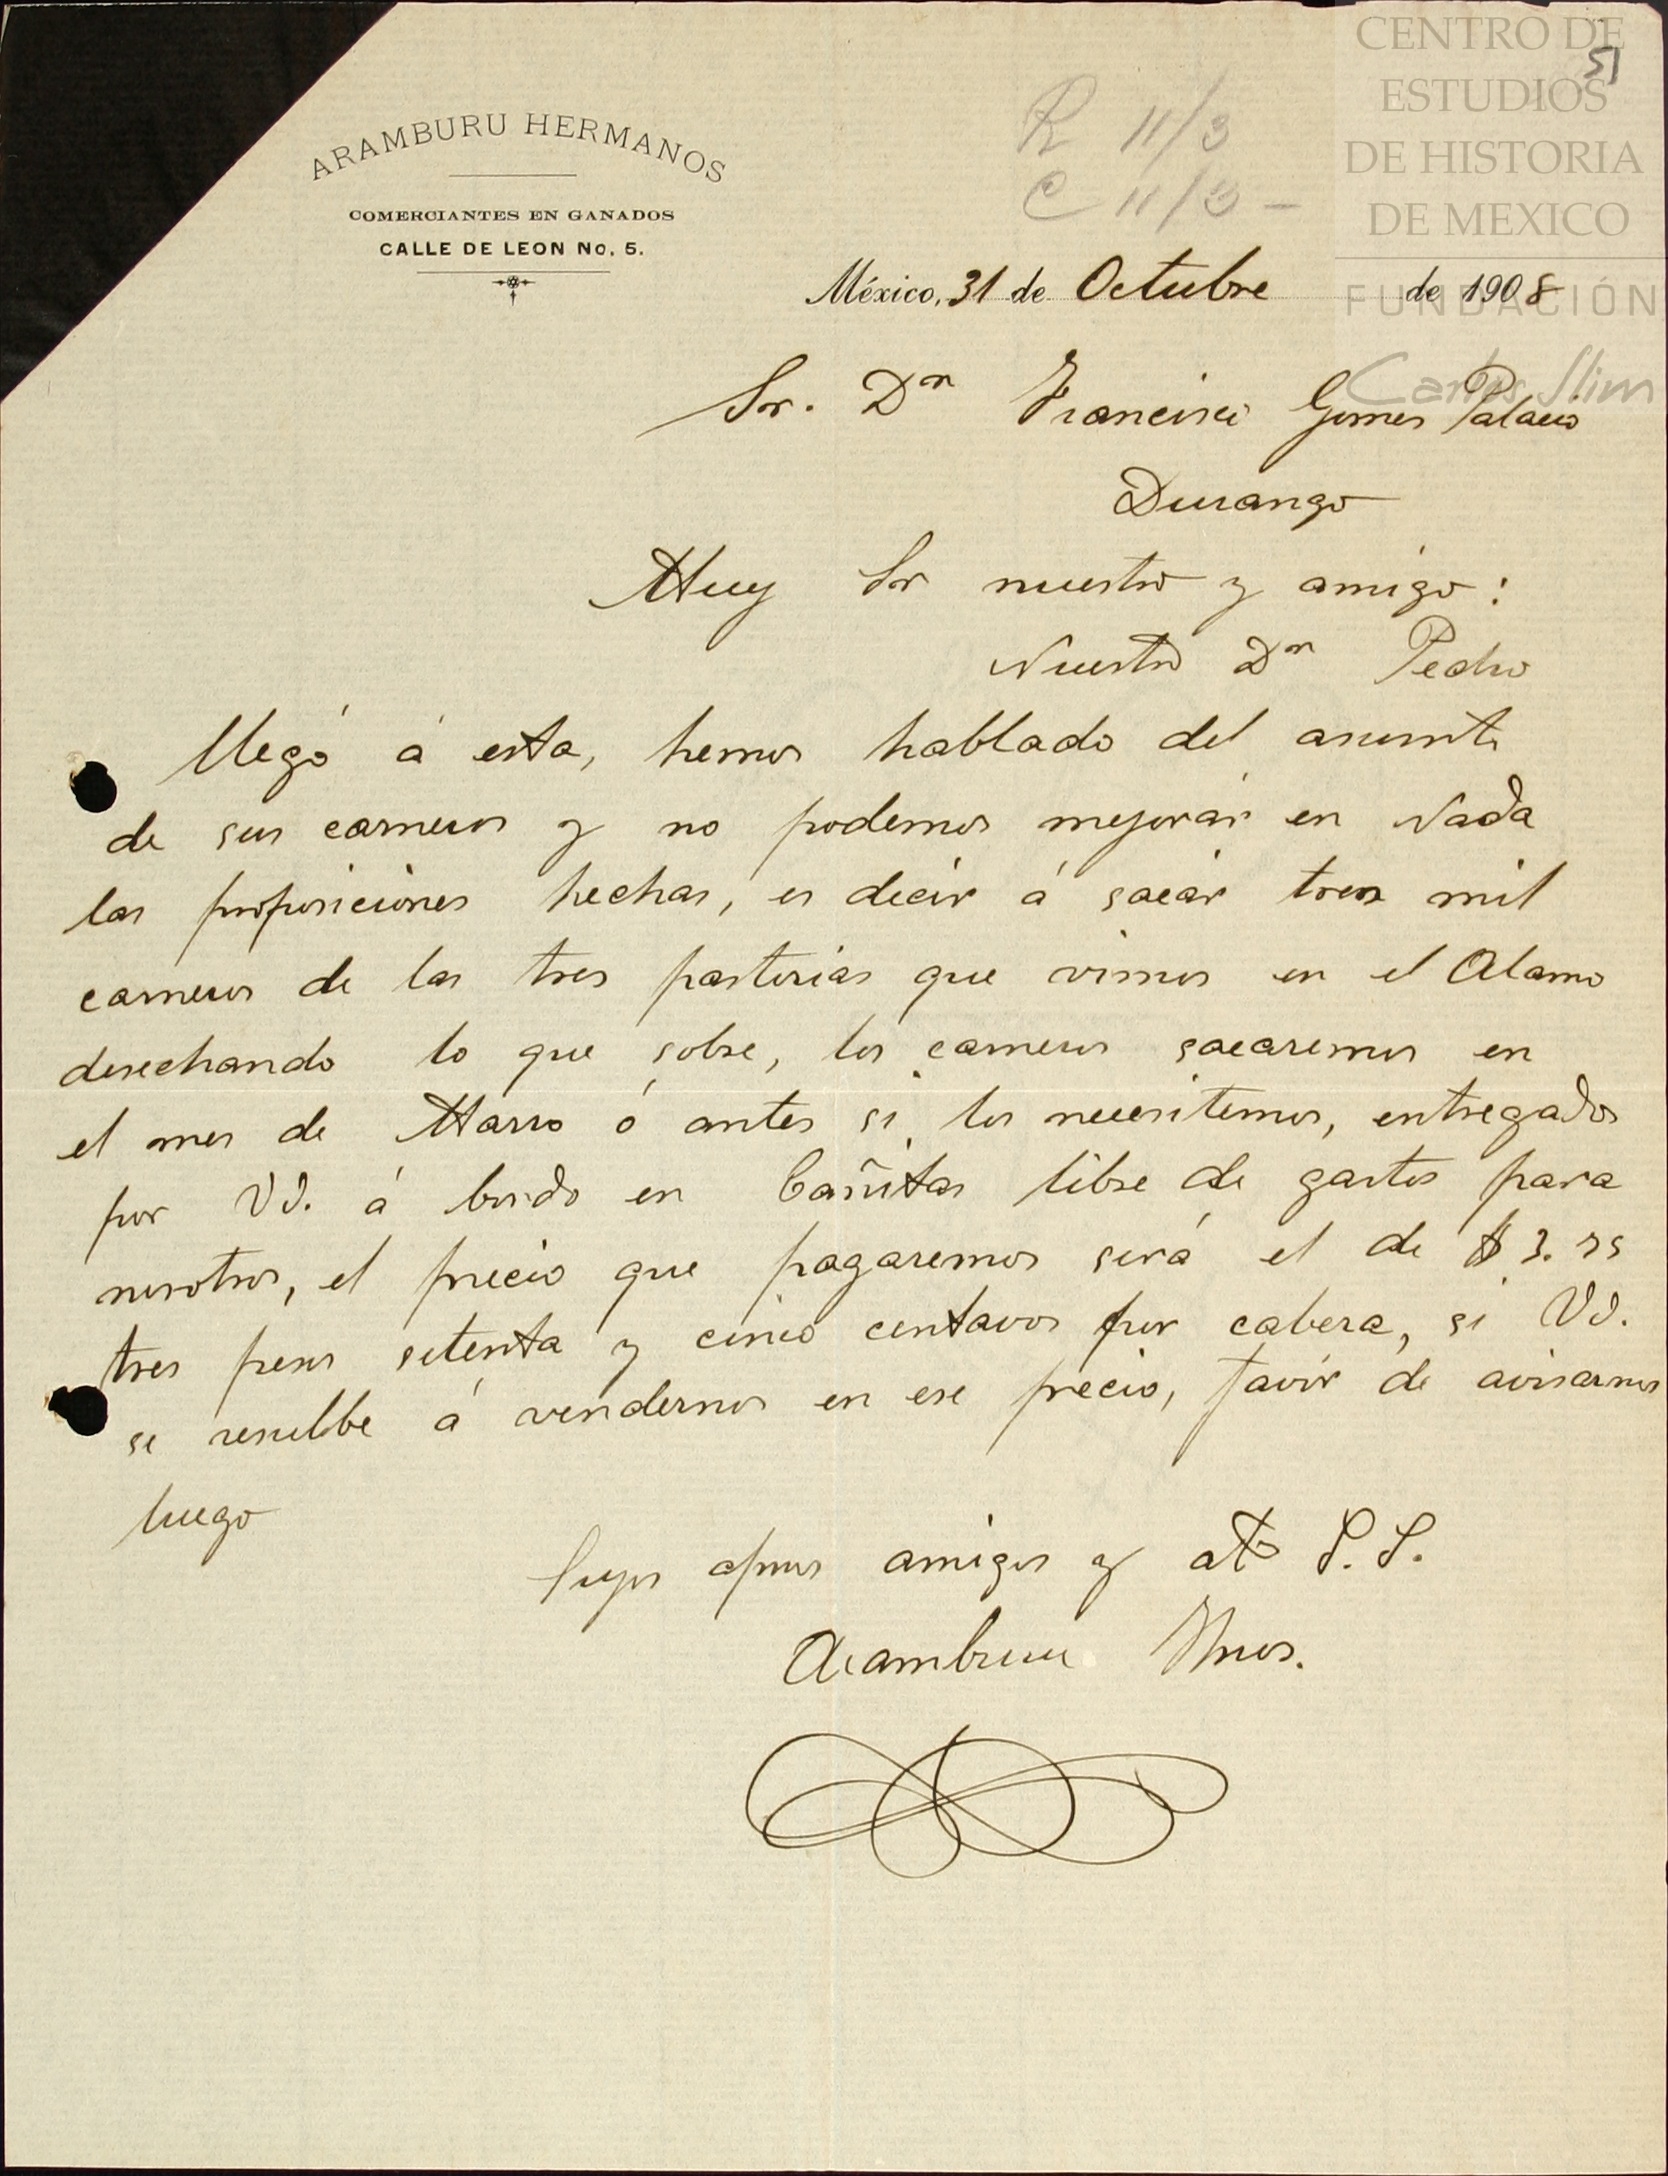 CENTRO DE
ESTUDIOS
DE HISTORIA
DE MEXICO
FUNDACIÓN
Carlos Slim
51
R 11/3
C 11/3 -
ARAMBURU HERMANOS
COMERCIANTES EN GANADOS
CALLE DE LEON No. 5.
México, 31 de Octubre de 1908
Sr. Dn Francisco Gomes Palacio
Durango
Muy Sr nuestro y amigo:
Nuestro Dn Pedro
llegó á esta, hemos hablado del asunto
de sus carneros y no podemos mejorar en Nada
las proposiciones hechas, es decir á sacar tres mil
carneros de las tres pastorias que vimos en el Alamo
desechando lo que sobre, los carneros sacaremos en
el mes de Marso ó antes si los necesitemos, entregados
por Vd. á bordo en Cañitas libre de gastos para
nosotros, el precio que pagaremos será el de $ 3.75
tres pesos setenta y cinco centavos por cabeza, si Vd.
se resuelbe á vendernos en ese precio, favor de avisarnos
luego
Suyos afmos amigos y atos S. S.
Aramburu Hnos.